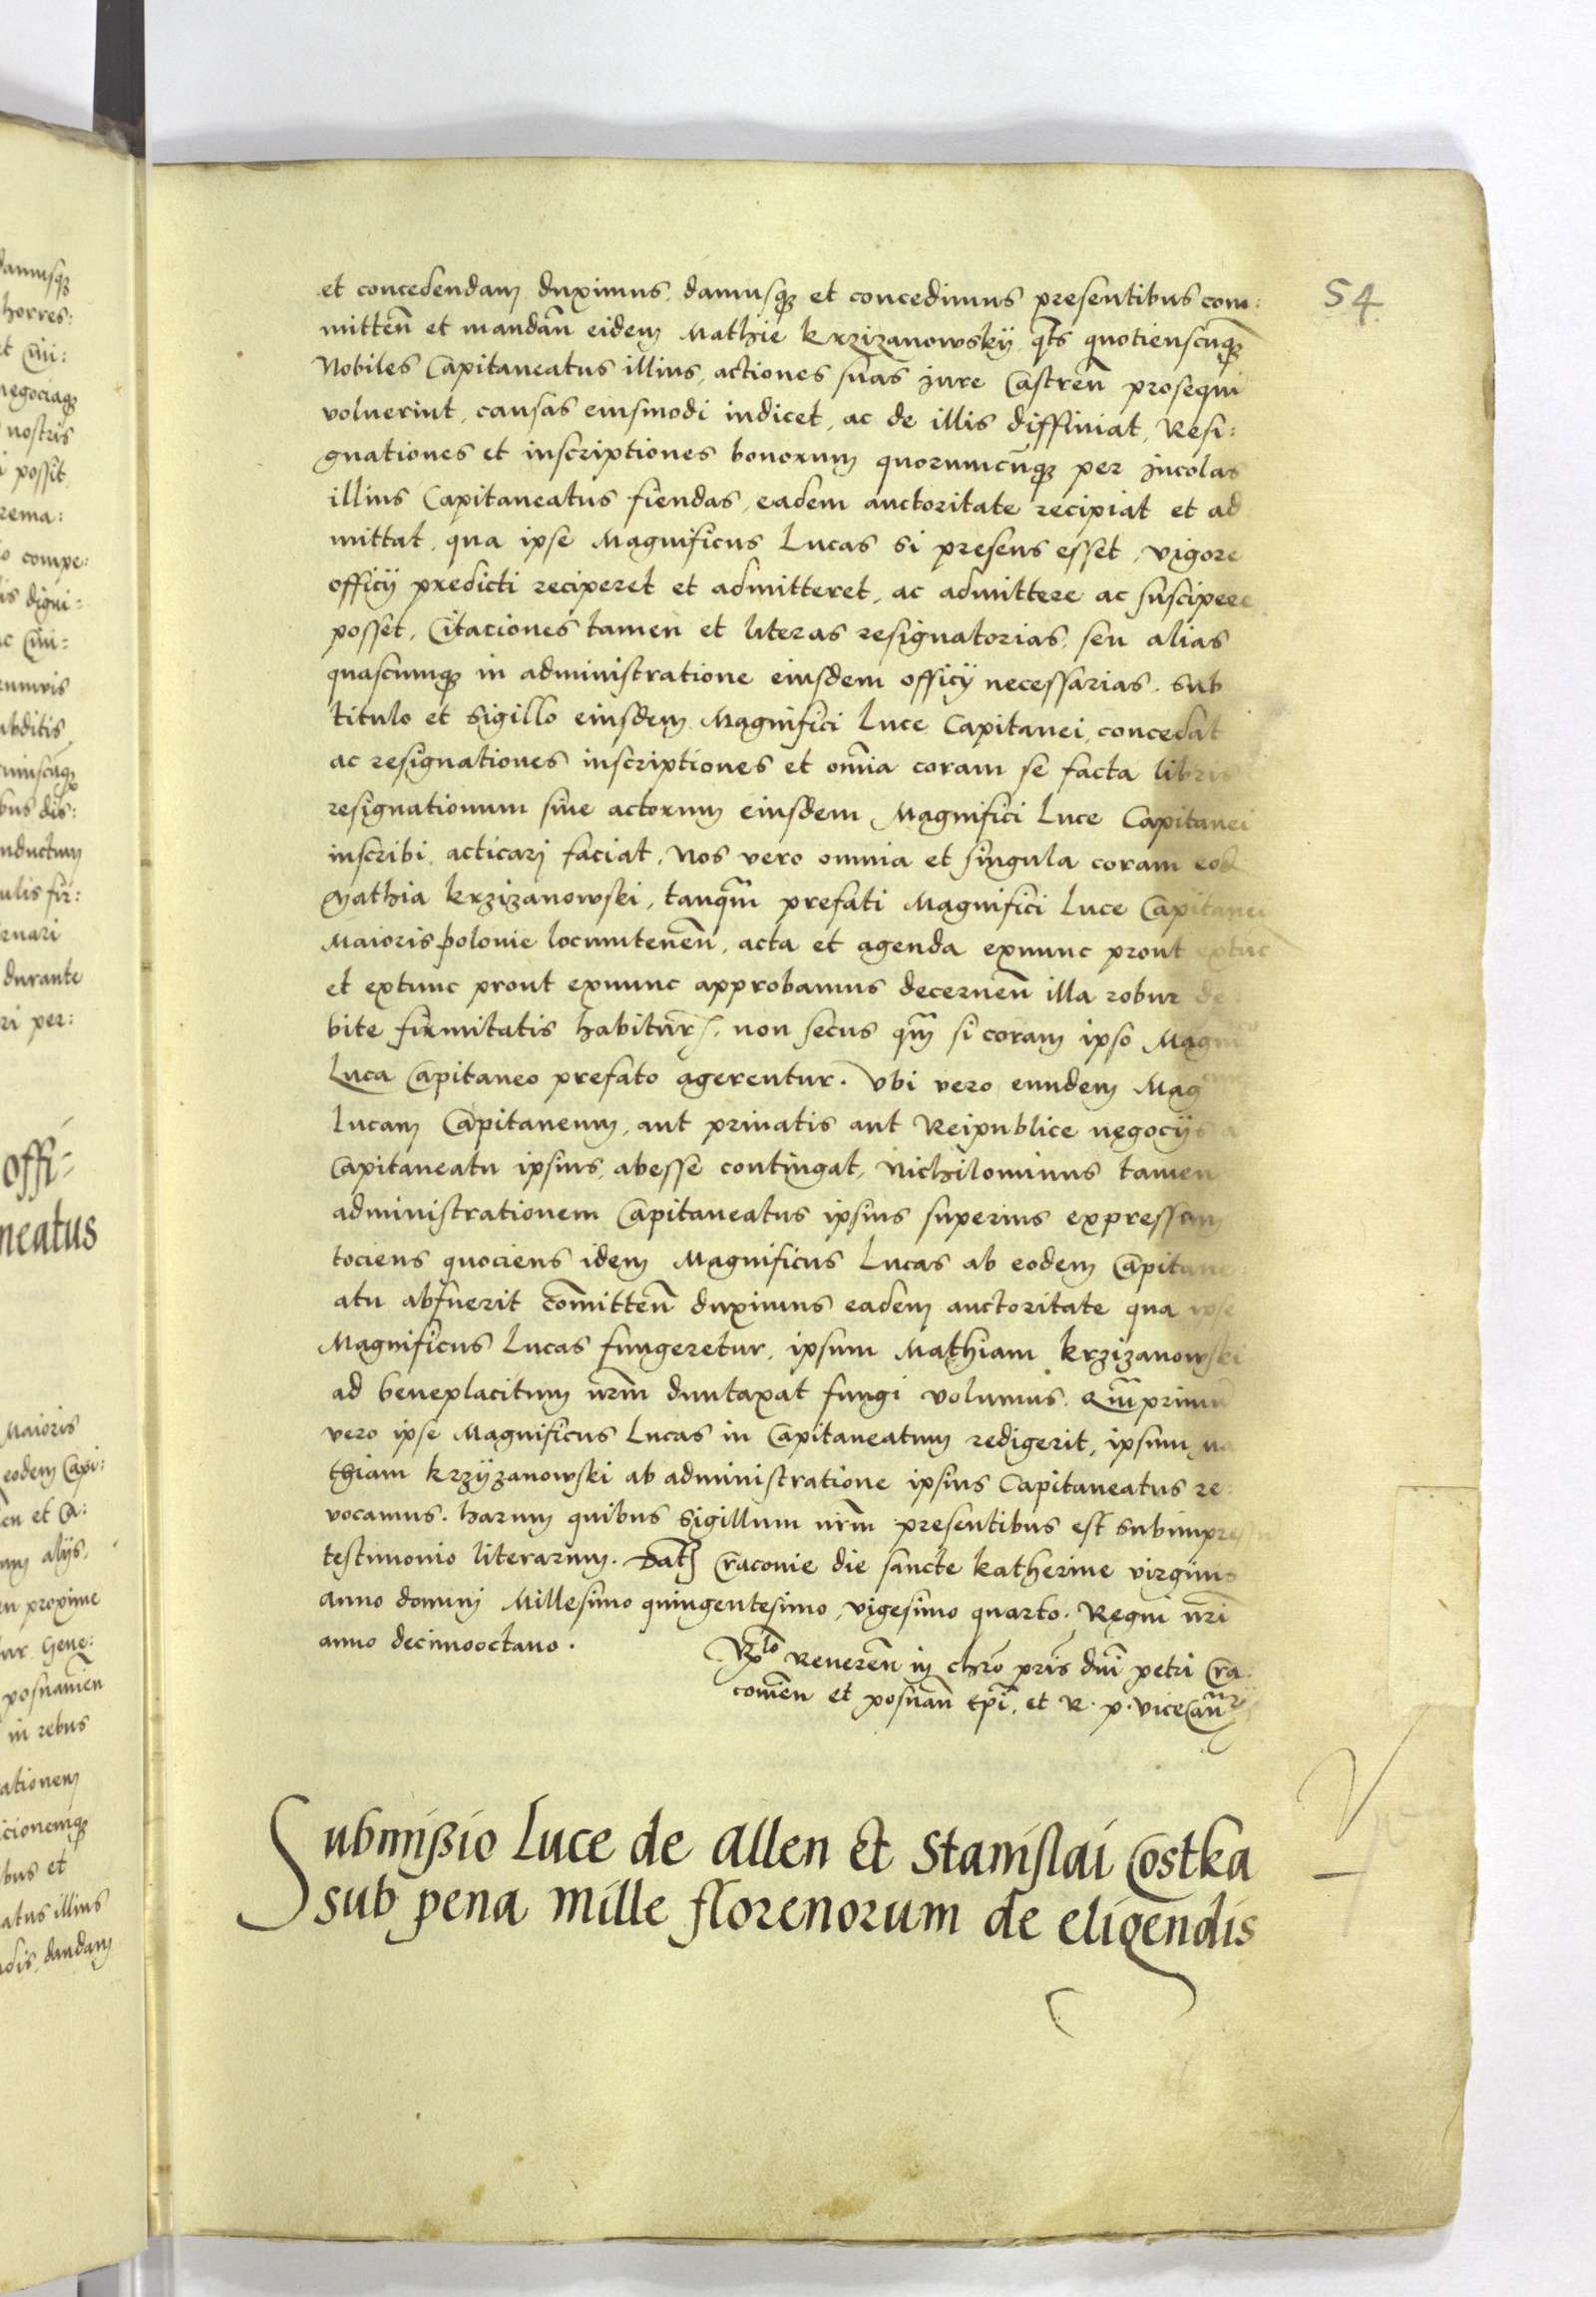 54
et concedendam duximus, damusq et concedimus presentibus com:
mitten̄ et mandan̄ eidem Mathie Krzizanowskÿ q̄ts quotienscūq
Nobiles Capitaneatus illius, actiones suas jure Castren̄ prosequi
voluerint, causas eiusmodi iudicet, ac de illis diffiniat, Resi:
gnationes et inscriptiones bonorum quorumcūq per Jncolas
illius Capitaneatus fiendas, eadem auctoritate recipiat et ad
mittat, qua ipse Magnificus Lucas si presens esset, vigore
officÿ predicti reciperet et admitteret, ac admittere ac suscipere
posset, Citaciones tamen et literas resignatorias, seu alias
quascumq in administratione eiusdem officÿ necessarias. sub
titulo et sigillo eiusdem Magnifici Luce Capitanei, concedat
ac resignationes inscriptiones et om̄ia coram se facta libris
resignationum siue actorum eiusdem Magnifici Luce Capitanei
inscribi, acticari faciat, Nos vero omnia et singula coram eod
Mathia Krzizanowski, tanq̄m prefati Magnifici Luce Capitanei
Maioris polonie locumtenen̄, acta et agenda exnunc prout extūc
et extunc prout exnunc approbamus decernen̄ illa robur de:
bite firmitatis habitur, non secus q̄m si coram ipso Magni
Luca Capitaneo prefato agerentur. Vbi vero eundem Mag
Lucam Capitaneum, aut priuatis aut Reipublice negocÿs a
Capitaneatu ipsius, abesse contingat, Nichilominus tamen
administrationem Capitaneatus ipsius superius expressam
tociens quociens idem Magnificus Lucas ab eodem Capitane:
atu abfuerit com̄itten̄ duximus eadem auctoritate qua ipse
Magnificus Lucas fungeretur, ipsum Mathiam Krzizanowski
ad beneplacitum nr̄m duntaxat fungi volumus. Q̄mprimū
vero ipse Magnificus Lucas in Capitaneatum redigerit, ipsum Ma
thiam Krzÿzanowski ab administratione ipsius Capitaneatus re:
vocamus. harum quibus sigillum nr̄m presentibus est subimpressu
testimonio literarum. Dat Craconie die sancte Katherine virginis
Anno domini Millesimo quingentesimo vigesimo quarto. Regni nr̄i
anno decimooctauo.
Rlo Reueren̄ in chr̄o pr̄is dn̄i petri Cra:
couien̄ et posnan̄ ep̄i, et R. p. vicecan̄
Submißio Luce de Allen Et Stanislai Costka
sub pena Mille florenorum de eligendis